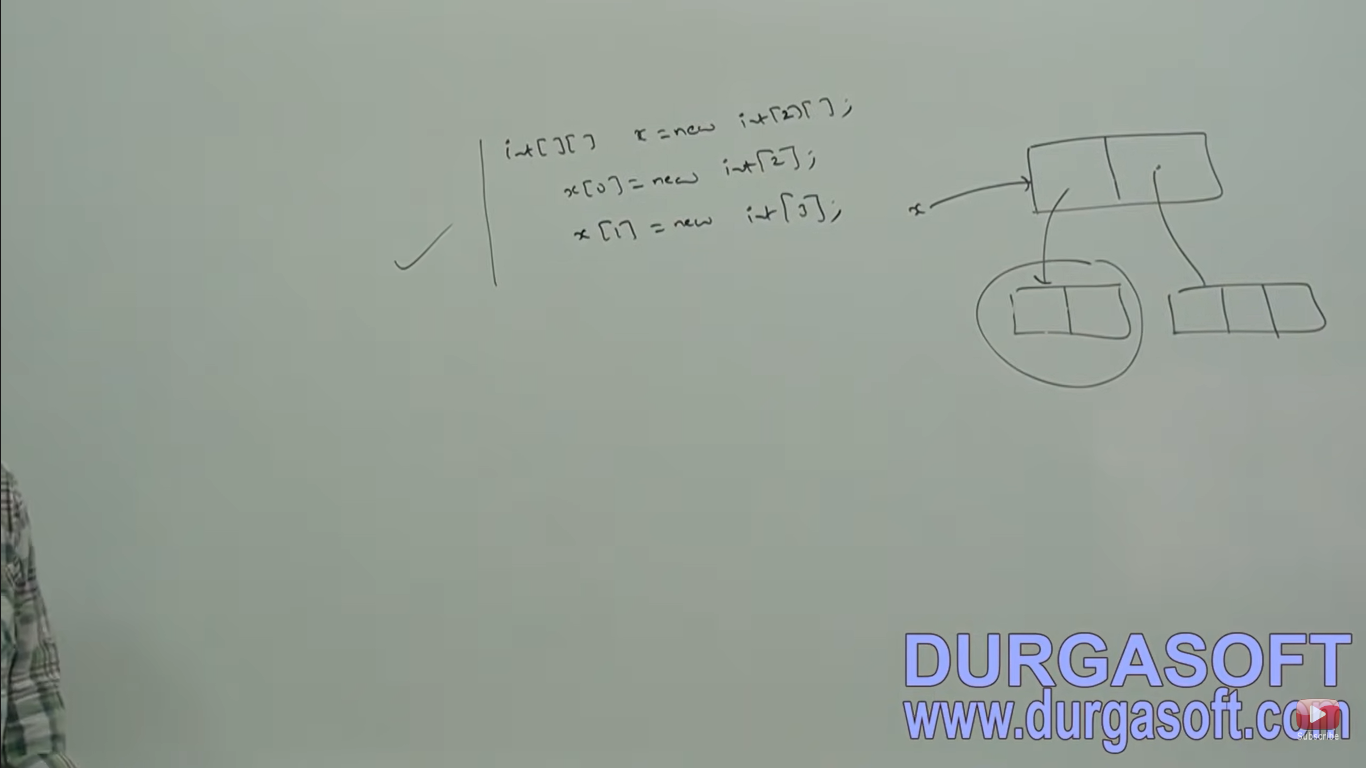 int[][] x = new int[2][];
x[0] = new int[2];
x[1] = new int[3];
x
DURGASOFT
www.durgasoft.com
Subscribe